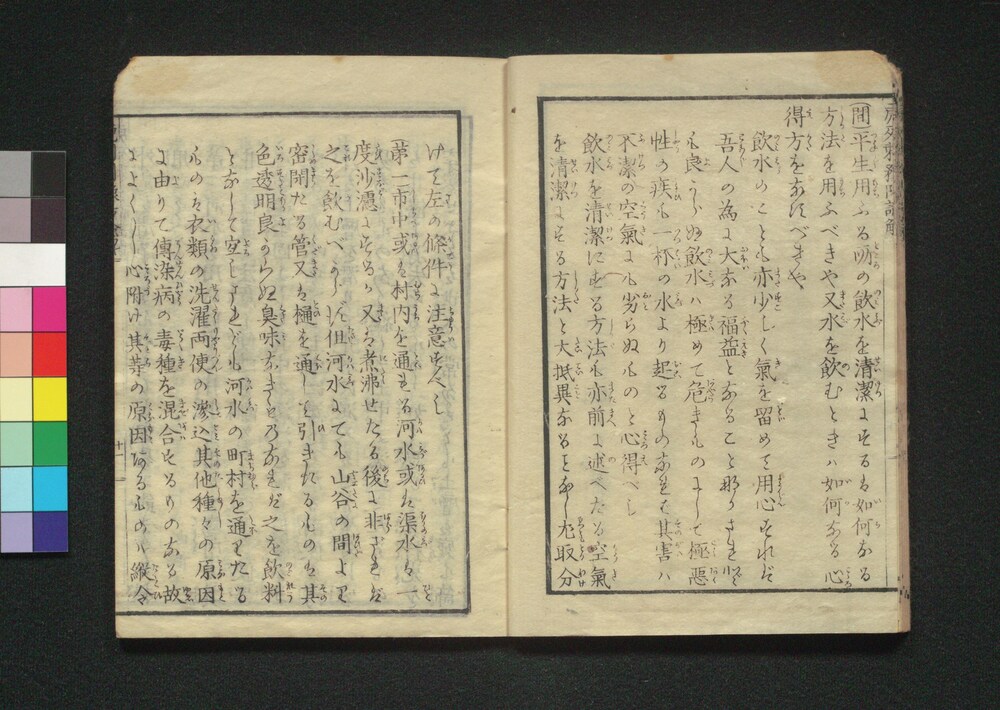 (問)平生用ふる所の飲水を清潔にするは如何なる
方法を用ふべきや又水を飲むときハ如何なる心
得方をなすべきや
飲水のことも亦少しく氣を留めて用心すれば
吾人の為に大なる福益となること
も良からぬ飲水ハ極めて危きものにして極惡
性の疾も一杯の水より起るものなれば其害ハ
不潔の空氣にも劣らぬものと心得べし
飲水を清潔にする方法も亦前に述べたる空氣
を清潔にする方法と大抵異なることなし尤取分
けて左の條件に注意すべし
第一市中或は村内を通ずる河水或は渠水ハ一
度沙濾にするか又は煮沸せたる後に非ざれば
之を飲むべからず但河水にても山谷の間より
密閉たる管又は樋を通して引きたるものは其
色透明良からぬ臭味なきものなれば之を飲料
となして宜しけれども河水の町村を通りたる
ものは衣類の洗濯両便の滲込其他種々の原因
に由りて傳染病の毒種を混合するものなる故
によく心附け其等の原因あるものハ縦令
十一